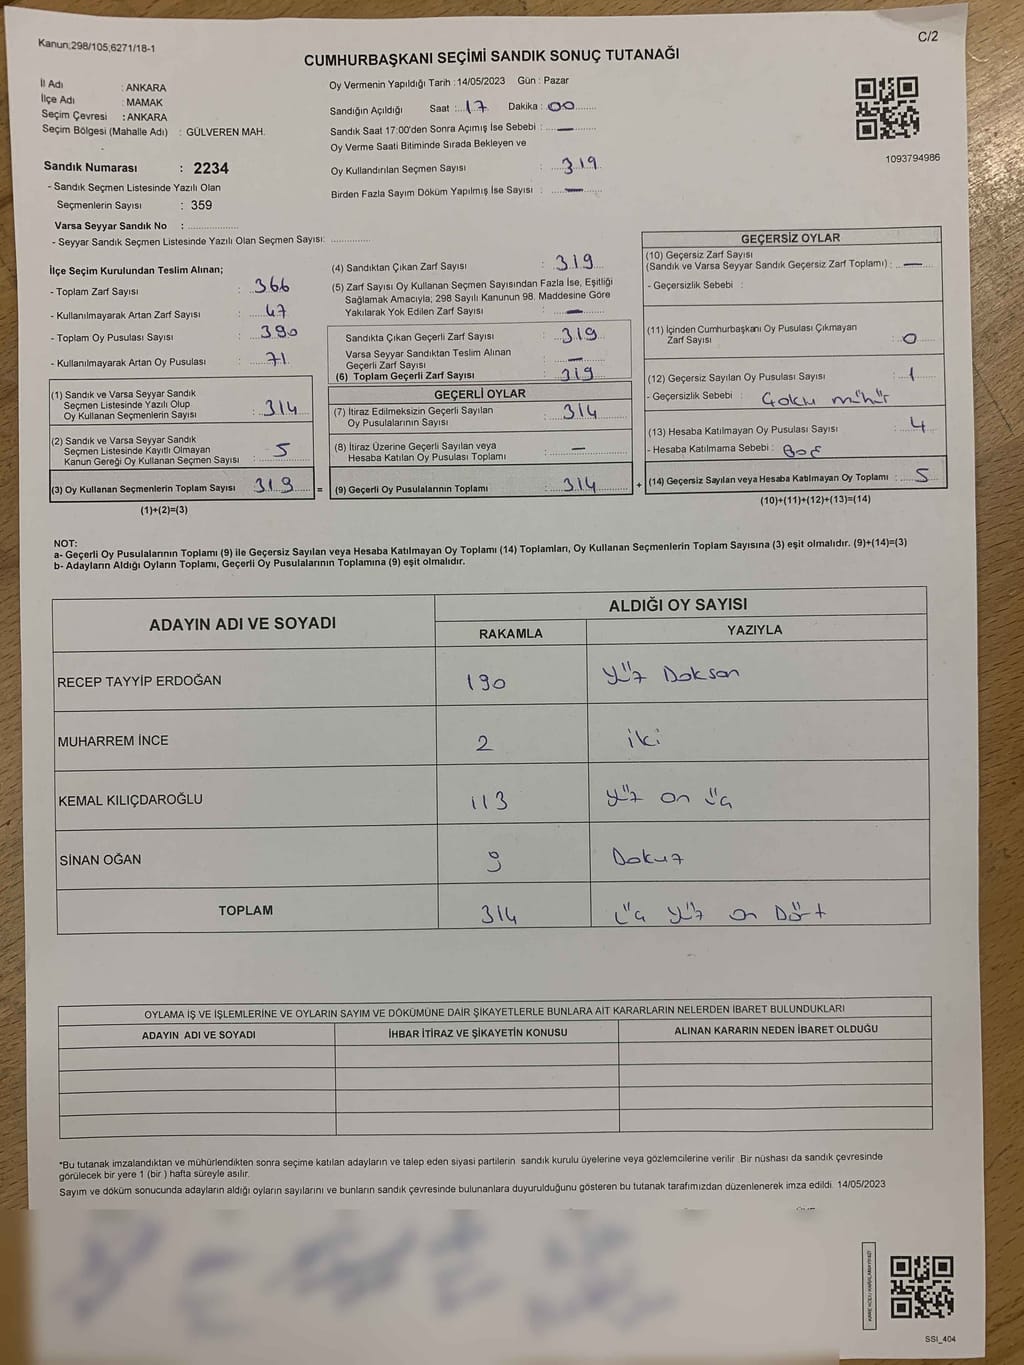 Kanun;298/105;6271/18-1
C/2
CUMHURBAŞKANI SEÇİMİ SANDIK SONUÇ TUTANAĞI
İl Adı : ANKARA
İlçe Adı : MAMAK
Seçim Çevresi : ANKARA
Seçim Bölgesi (Mahalle Adı) : GÜLVEREN MAH.
Sandık Numarası : 2234
- Sandık Seçmen Listesinde Yazılı Olan
Seçmenlerin Sayısı : 359
Varsa Seyyar Sandık No :
- Seyyar Sandık Seçmen Listesinde Yazılı Olan Seçmen Sayısı:
Oy Vermenin Yapıldığı Tarih : 14/05/2023 Gün : Pazar
Sandığın Açıldığı Saat : 17 Dakika : 00
Sandık Saat 17:00'den Sonra Açımış İse Sebebi : —
Oy Verme Saati Bitiminde Sırada Bekleyen ve
Oy Kullandırılan Seçmen Sayısı : 319
Birden Fazla Sayım Döküm Yapılmış İse Sayısı : —
1093794986
İlçe Seçim Kurulundan Teslim Alınan;
- Toplam Zarf Sayısı : 366
- Kullanılmayarak Artan Zarf Sayısı : 47
- Toplam Oy Pusulası Sayısı : 390
- Kullanılmayarak Artan Oy Pusulası : 71
(1) Sandık ve Varsa Seyyar Sandık
Seçmen Listesinde Yazılı Olup
Oy Kullanan Seçmenlerin Sayısı : 314
(2) Sandık ve Varsa Seyyar Sandık
Seçmen Listesinde Kayıtlı Olmayan
Kanun Gereği Oy Kullanan Seçmen Sayısı : 5
(3) Oy Kullanan Seçmenlerin Toplam Sayısı 319 =
(1)+(2)=(3)
(4) Sandıktan Çıkan Zarf Sayısı : 319
(5) Zarf Sayısı Oy Kullanan Seçmen Sayısından Fazla İse, Eşitliği
Sağlamak Amacıyla; 298 Sayılı Kanunun 98. Maddesine Göre
Yakılarak Yok Edilen Zarf Sayısı : —
Sandıkta Çıkan Geçerli Zarf Sayısı : 319
Varsa Seyyar Sandıktan Teslim Alınan
Geçerli Zarf Sayısı : —
(6) Toplam Geçerli Zarf Sayısı : 319
GEÇERLİ OYLAR
(7) İtiraz Edilmeksizin Geçerli Sayılan
Oy Pusulalarının Sayısı : 314
(8) İtiraz Üzerine Geçerli Sayılan veya
Hesaba Katılan Oy Pusulası Toplamı : —
(9) Geçerli Oy Pusulalarının Toplamı : 314 +
GEÇERSİZ OYLAR
(10) Geçersiz Zarf Sayısı
(Sandık ve Varsa Seyyar Sandık Geçersiz Zarf Toplamı) : —
- Geçersizlik Sebebi :
(11) İçinden Cumhurbaşkanı Oy Pusulası Çıkmayan
Zarf Sayısı : 0
(12) Geçersiz Sayılan Oy Pusulası Sayısı : 1
- Geçersizlik Sebebi : Çoklu mühür
(13) Hesaba Katılmayan Oy Pusulası Sayısı : 4
- Hesaba Katılmama Sebebi : Boş
(14) Geçersiz Sayılan veya Hesaba Katılmayan Oy Toplamı : 5
(10)+(11)+(12)+(13)=(14)
NOT:
a- Geçerli Oy Pusulalarının Toplamı (9) ile Geçersiz Sayılan veya Hesaba Katılmayan Oy Toplamı (14) Toplamları, Oy Kullanan Seçmenlerin Toplam Sayısına (3) eşit olmalıdır. (9)+(14)=(3)
b- Adayların Aldığı Oyların Toplamı, Geçerli Oy Pusulalarının Toplamına (9) eşit olmalıdır.
ADAYIN ADI VE SOYADI ALDIĞI OY SAYISI
RAKAMLA YAZIYLA
RECEP TAYYİP ERDOĞAN 190 Yüz Doksan
MUHARREM İNCE 2 iki
KEMAL KILIÇDAROĞLU 113 Yüz on üç
SİNAN OĞAN 9 Dokuz
TOPLAM 314 üç yüz on Dört
OYLAMA İŞ VE İŞLEMLERİNE VE OYLARIN SAYIM VE DÖKÜMÜNE DAİR ŞİKAYETLERLE BUNLARA AİT KARARLARIN NELERDEN İBARET BULUNDUKLARI
ADAYIN ADI VE SOYADI İHBAR İTİRAZ VE ŞİKAYETİN KONUSU ALINAN KARARIN NEDEN İBARET OLDUĞU
*Bu tutanak imzalandıktan ve mühürlendikten sonra seçime katılan adayların ve talep eden siyasi partilerin sandık kurulu üyelerine veya gözlemcilerine verilir .Bir nüshası da sandık çevresinde
görülecek bir yere 1 (bir ) hafta süreyle asılır.
Sayım ve döküm sonucunda adayların aldığı oyların sayılarını ve bunların sandık çevresinde bulunanlara duyurulduğunu gösteren bu tutanak tarafımızdan düzenlenerek imza edildi. 14/05/2023
SSI_404